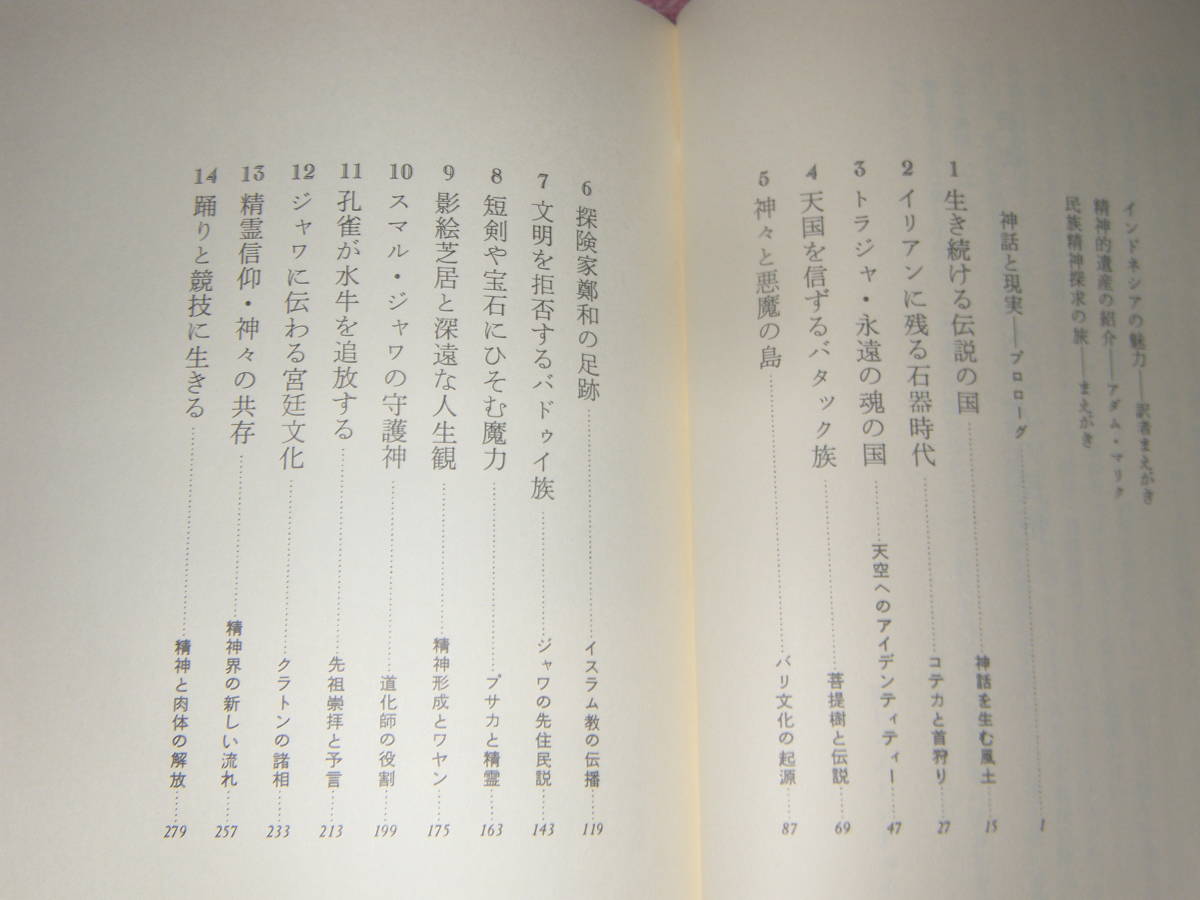 インドネシアの魅力――訳者まえがき
精神的遺産の紹介――アダム・マリク
民族精神探求の旅――まえがき
神話と現実――プロローグ…………1
1 生き続ける伝説の国…………神話を生む風土…………15
2 イリアンに残る石器時代…………コテカと首狩り…………27
3 トラジャ・永遠の魂の国…………天空へのアイデンティティー…………47
4 天国を信ずるバタック族…………菩提樹と伝説…………69
5 神々と悪魔の島…………バリ文化の起源…………87
6 探険家鄭和の足跡…………イスラム教の伝播…………119
7 文明を拒否するバドゥイ族…………ジャワの先住民説…………143
8 短剣や宝石にひそむ魔力…………プサカと精霊…………163
9 影絵芝居と深遠な人生観…………精神形成とワヤン…………175
10 スマル・ジャワの守護神…………道化師の役割…………199
11 孔雀が水牛を追放する…………先祖崇拝と予言…………213
12 ジャワに伝わる宮廷文化…………クラトンの諸相…………233
13 精霊信仰・神々の共存…………精神界の新しい流れ…………257
14 踊りと競技に生きる…………精神と肉体の解放…………279